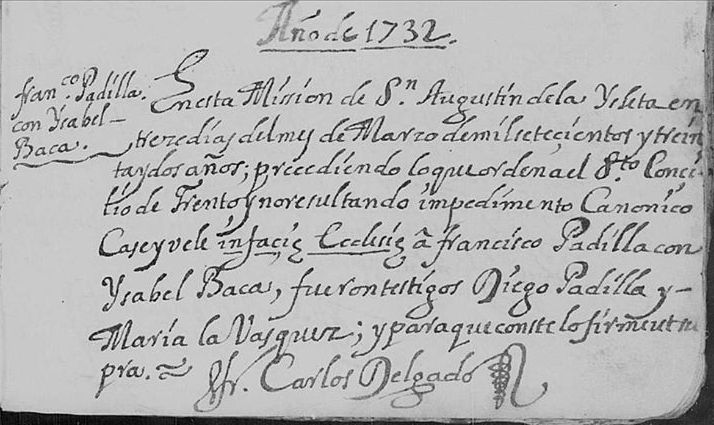 Año de 1732.
Fran.co Padilla.
con Ysabel
Baca.
En esta Mission de S.n Augustin de la Ysleta en
treze dias del mes de Marzo de mil setecientos y trein
ta y dos años; precediendo lo que ordena el S.to Conci-
lio de Trento y no resultando impedimento Canonico
Case y vele in facie Ecclesie â francisco Padilla con
Ysabel Baca, fueron testigos Diego Padilla y-
Maria la Vasquez; y para que conste lo firmè ut su
pra. fr. Carlos Delgado